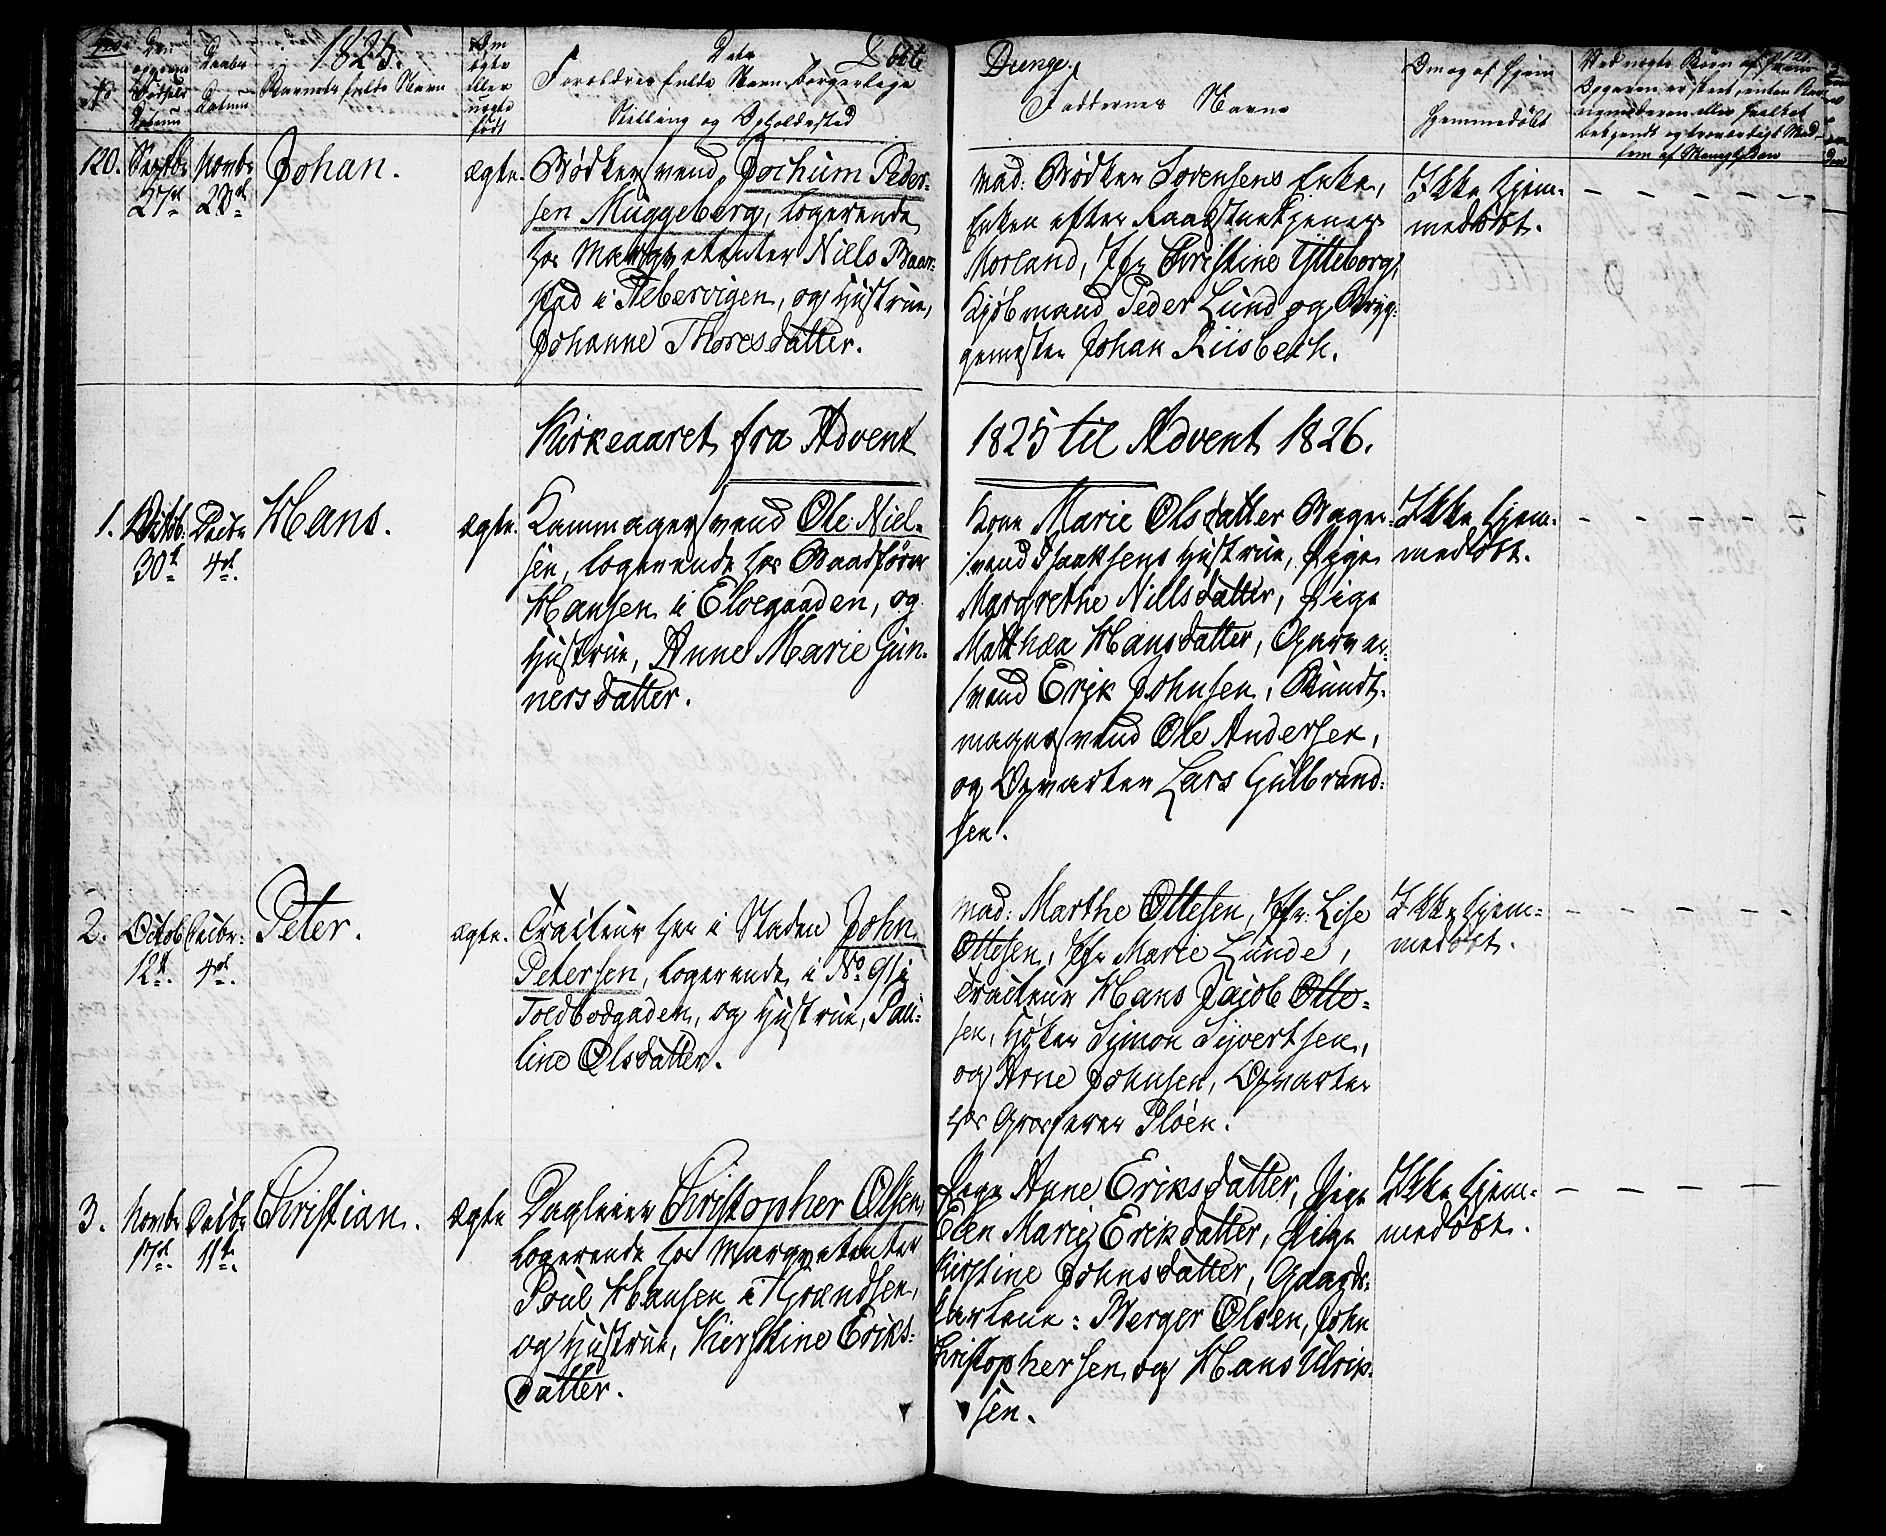 1825.
Døbte
Drenge.
Barnets fulde Navn
Om ægte eller uægte født
Forældres fulde Navn, Borgerlige
Stilling og Opholdssted
Faddernes Navne
Om og af hjem
hjemmedøbt
120. Septbr 27d. Novbr 20d. Johan. ægte.
Bødkersvend Jochum Peder-
sen Muggeberg, logerende
hos Marqvetenter Niels Baar-
stad i Pebervigen, og Hustrue,
Johanne Thoresdatter.
Mad: Bødker Sørensens Enke,
Enken efter Raadstuetjener
Morland, Jfr Christine Ytteborg,
Kjøbmand Peder Lund og Bryg-
gemester Johan Riisbech.
Ikke hjem-
medøbt.
Kirkeaaret fra Advent 1825 til Advent 1826.
1. Octob: 30d. Decbr 4d. Hans. ægte.
Kammagersvend Ole Niel-
sen, logerende hos Baadfører
Hansen i Elvegaden, og
Hustrue, Anne Marie Gun-
nersdatter.
Kone Marie Olsdatter Bager-
svend Isaaksens Hustrue, Pige
Margrethe Nillsdatter, Pige
Matthea Hansdatter, Garver-
svend Erik Johnsen, Bundt-
magersvend Ole Andersen,
og Opvarter Lars Gulbrand-
sen.
Ikke hjem-
medøbt.
2. Octob 12d. Decbr: 4d. Peter. ægte.
Traiteur her i Staden John
Petersen, logerende i No 91 i
Toldbodgaden, og Hustrue, Pau-
line Olsdatter.
Mad: Marthe Ottesen, Jfr: Lise
Ottesen, Jfr Marie Lunde,
Traiteur Hans Jacob Otte-
sen, Høker Simon Syvertsen,
og Arne Johnsen, Opvarter
hos Grosserer Pløen.
Ikke hjem-
medøbt.
3. Novbr 17d. Decbr 11d. Christian. ægte
Dagleier Christopher Olsen,
logerende hos Marqvetenter
Poul Hansen i Grændsen,
og Hustrue, Kierstine Eriks-
datter.
Pige Anne Eriksdatter, Pige
Elen Marie Eriksdatter, Pige
Kirstine Johnsdatter, Gaards-
karlene: Berger Olsen, John
Christophersen og Hans Ulrik-
sen.
Ikke hjem-
medøbt.